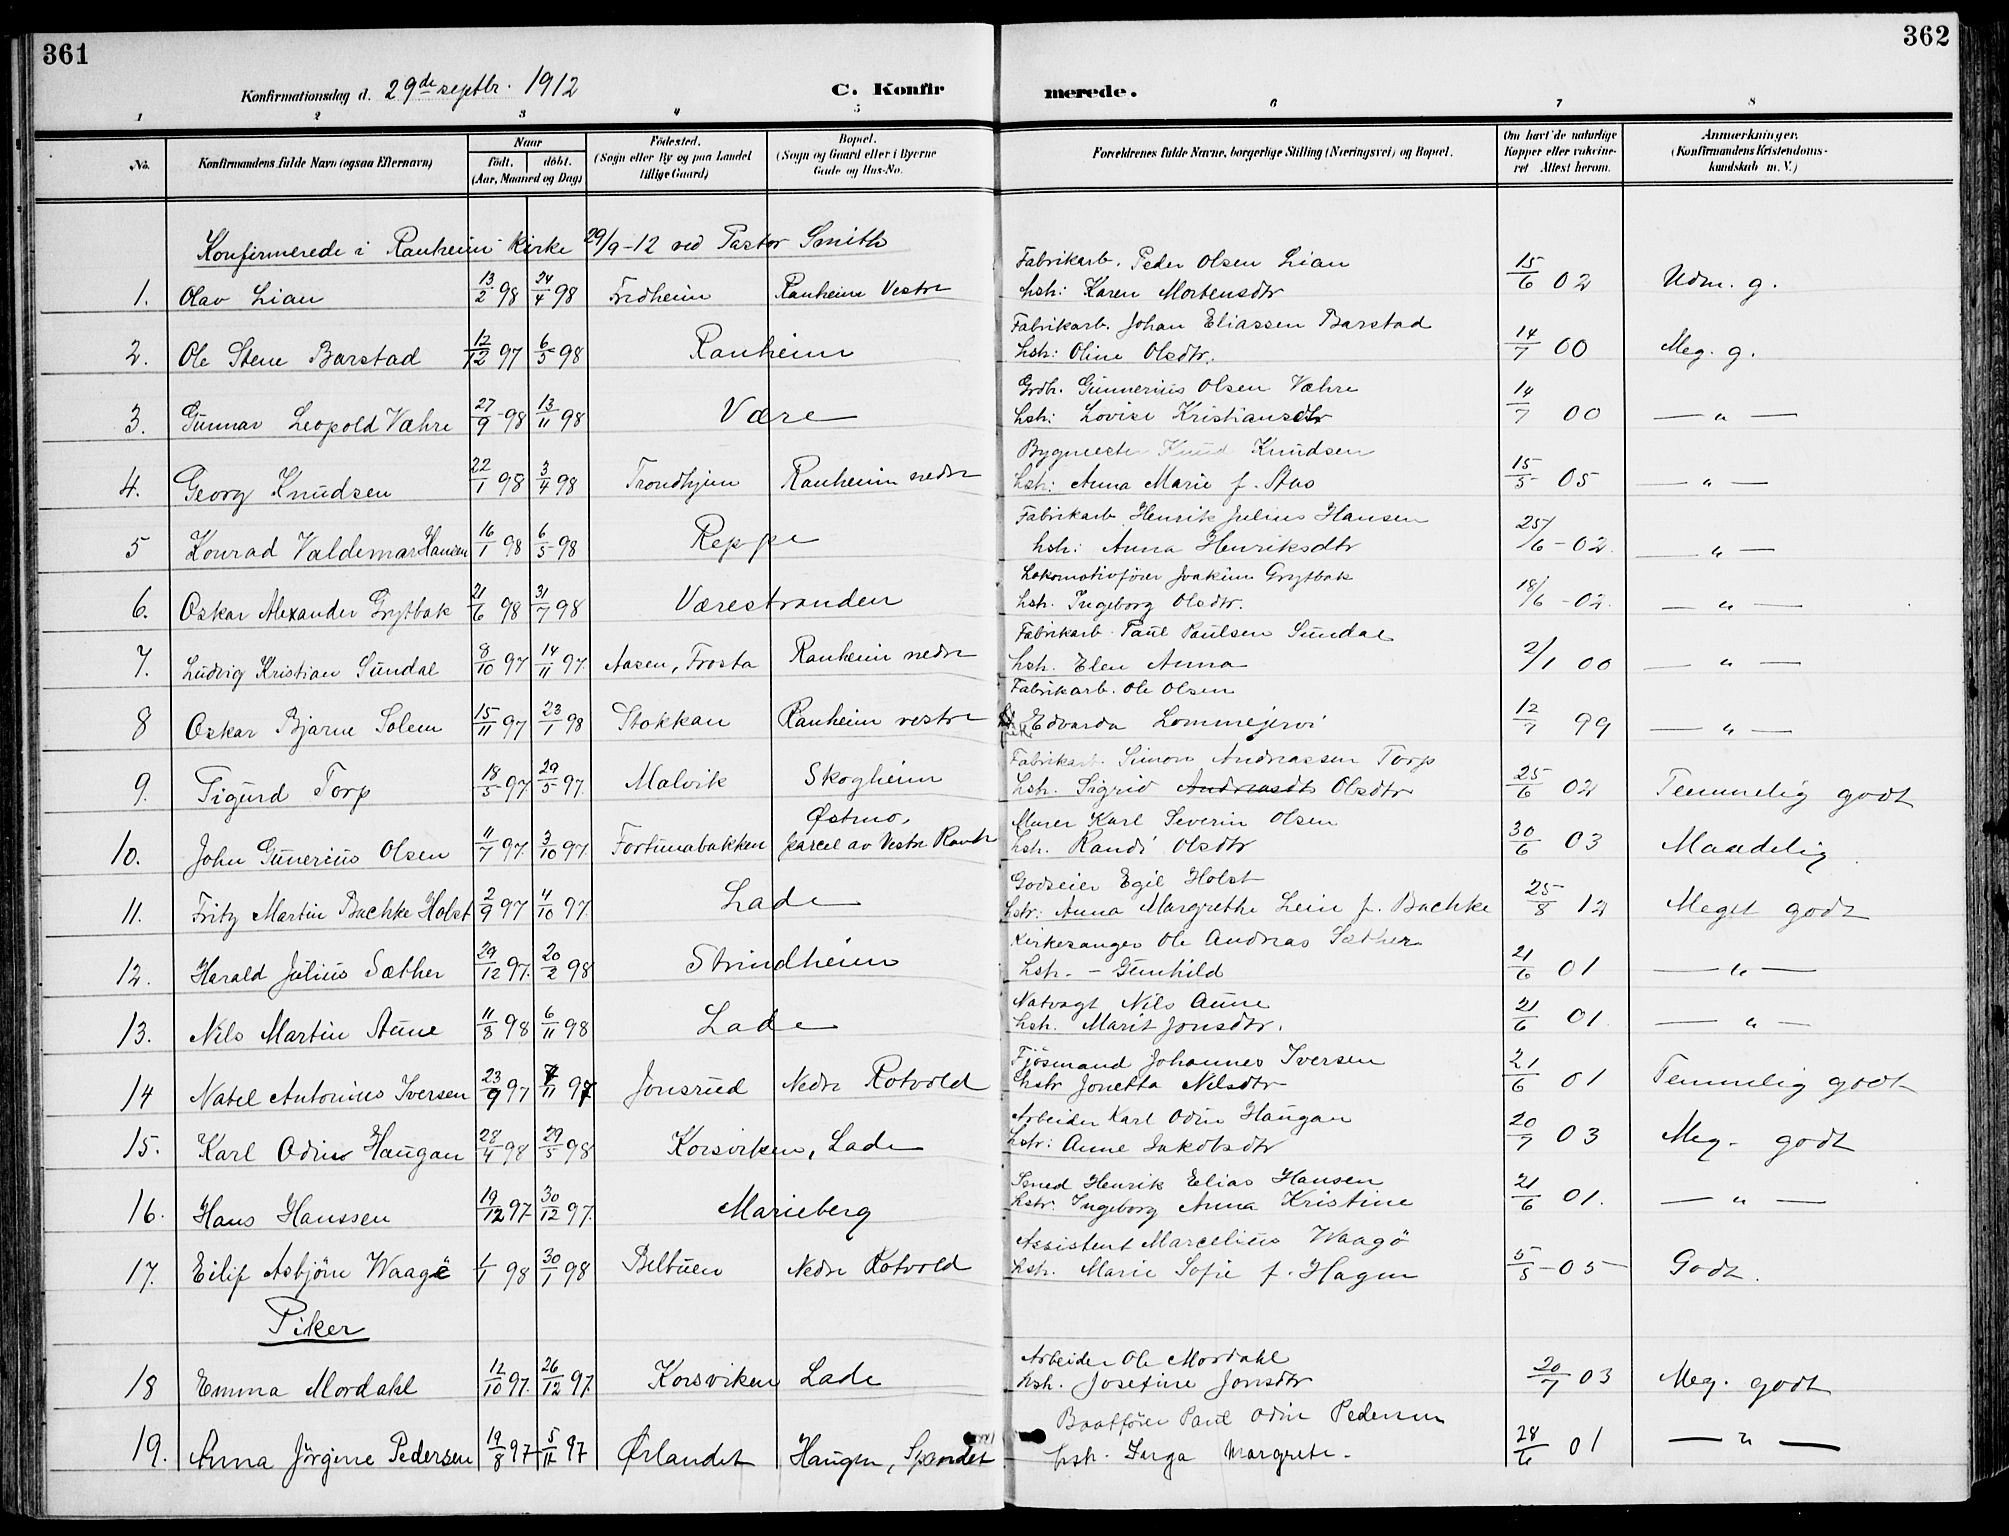 361
362
Konfirmationsdag d. 29de septbr. 1912
C. Konfirmerede.
1 2 3 4 5 6 7 8
No.
Konfirmandens fulde Navn (ogsaa Efternavn)
Naar
født, døbt.
(Aar, Maaned og Dag)
Fødested.
(Sogn eller By og paa Landet
tillige Gaard)
Bopæl.
(Sogn og Gaard eller i Byerne
Gade og Hus-No.
Forældrenes fulde Navne, borgerlige Stilling (Næringsvei) og Bopæl.
Om havt de naturlige
Kopper eller vakcine-
ret Attest herom.
Anmærkninger.
(Konfirmandens Kristendoms-
kundskab m. V.)
Konfirmerede i Ranheim Kirke 29/9-12 ved Pastor Smith
Fabrikarb. Peder Olsen Lian
1. Olav Lian 13/2 98 24/4 98 Fredheim Ranheim Vestre hstr: Karen Mortensdtr 15/6 02 Udm. g.
Fabrikarb. Johan Eliassen Barstad
2. Ole Stene Barstad 12/12 97 6/5 98 Ranheim hstr: Oline Olsdtr. 14/7 00 Meg. g.
Grdb. Gunnerius Olsen Væhre
3. Gunnar Leopold Væhre 27/9 98 13/11 98 Være hstr: Lovise Kristiansdtr 14/7 00 — " —
Bygmester Knud Knudsen
4. Georg Knudsen 22/1 98 3/4 98 Trondhjem Ranheim nedre hstr: Anna Marie f. 15/5 05 — " —
Fabrikarb. Henrik Julius Hansen
5 Konrad Valdemar Hansen 16/1 98 6/5 98 Reppe hstr: Anna Henriksdtr 25/6 - 02. — " —
Lokomotivfører Joakim Grytbak
6. Oskar Alexander Grytbak 21/6 98 31/7 98 Værestranden hstr. Ingeborg Olsdtr. 18/6 - 02. — " —
Fabrikarb. Paul Paulsen Sundal
7. Ludvig Kristian Sundal 8/10 97 14/11 97. Aasen, Frosta Ranheim nedre hstr. Elen Anna 2/1 00 — " —
Fabrikarb. Ole Olsen
8 Oskar Bjarne Solem 15/11 97 23/1 98 Stokkan Ranheim vestre Edvarda Lommejervi 12/7 99 — " —
Fabrikarb. Simon Andreassen Torp
9. Sigurd Torp 18/5 97 29/5 97. Malvik Skogheim hstr. Sigrid Andreasdt. Olsdtr 25/6 02 Temmelig godt
Østmo, Murer Karl Severin Olsen
10. John Gunerius Olsen 11/7 97. 3/10 97. Fortunabakken parcel av Vestre Ranh hstr. Randi Olsdtr 30/6 03 Maadelig
Godseier Egil Holst
11. Fritz Martin Bachke Holst 2/9 97 4/10 97. Lade hstr: Anna Margrethe Lein f. Bachke 25/8 12 Meget godt
Kirkesanger Ole Andreas Sæther
12. Harald Julius Sæther 29/12 97. 20/2 98 Strindheim hstr. - Gunhild 21/6 01 — " —
Natvagt Nils Aune
13. Nils Martin Aune 11/8 98 6/11 98 Lade hstr. Marit Jonsdtr. 21/6 01 — " —
Fjøsmand Johannes Iversen
14 Natel Antonius Iversen 23/9 97 7/11 97 Jonsrud Nedre Rotvold hstr Jonetta Nilsdtr 21/6 01 Temmelig godt
Arbeider Karl Odin Haugan
15. Karl Odin Haugan 28/4 98 29/5 98 Korsviken, Lade hstr: Anne Jakobsdtr 20/7 03 Meg. godt
Smed Henrik Elias Hansen
16. Hans Hanssen 19/12 97. 30/12 97. Marieberg hstr. Ingeborg Anna Kristine 21/6 01. — " —
Assistent Marcelius Waagø
17. Eilif Asbjørn Waagø 1/1 98 30/1 98 Belbuen Nedre Rotvold hstr. Marie Sofie f. Hagen 5/5 - 05 Godt.
Piker
Arbeider Ole Mordahl
18 Emma Mordahl 12/10 97. 26/12 97. Korsviken Lade hstr. Josefine Jonsdtr 20/7 03 Meg. godt
Baatfører Paul Odin Pedersen
19. Anna Jørgine Pedersen 19/8 97 5/11 97 Ørlandet Haugen, hstr. Inga Margrete. 28/6 01 — " —